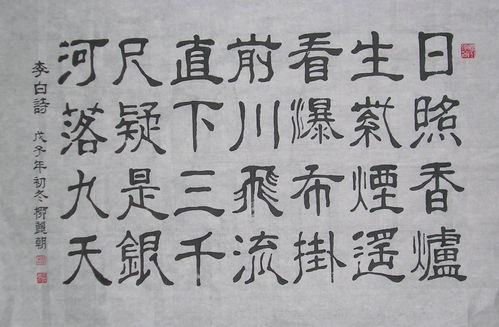 日照香爐
生紫煙遙
看瀑布掛
前川飛流
直下三千
尺疑是銀
河落九天
李白詩 戊子年初冬 麗朝